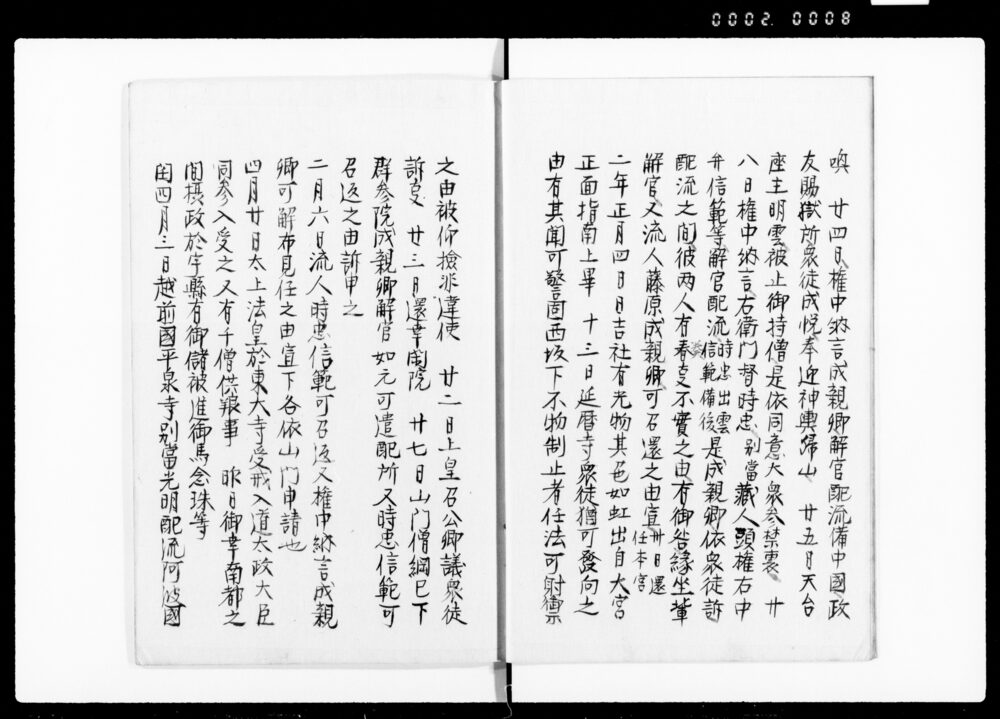 0002. 0008
喚 廿四日権中納言成親卿解官配流備中國政
友賜獄所衆徒成悦奉迎神輿歸山 廿五日天台
座主明雲被止御持僧是依同意大衆参禁裏 廿
八日権中納言右衛門督時忠別當藏人頭権右中
弁信範等解官配流時忠出雲信範備後是成親卿依衆徒訴
配流之間彼両人有奏事不實之由有御咎縁坐輩
解官又流人藤原成親卿可召還之由宣卅日還任本官
二年正月四日日吉社有光物其色如虹出自大宮
正面指南上畢 十三日延暦寺衆徒猶可發向之
由有其聞可警固西坂下不拘制止者任法可射禦
之由被仰檢非違使 廿二日上皇召公卿議衆徒
訴事 廿三日還幸法院 廿七日山門僧綱已下
群参院成親卿解官如元可遣配所又時忠信範可
召返之由訴申之
二月六日流人時忠信範可召返又権中納言成親
卿可解却見任之由宣下各依山門申請也
四月廿日太上法皇於東大寺受戒入道太政大臣
同参入受之又有千僧供粮事 昨日御幸南都之
間摂政於宇縣有御儲被進御馬念珠等
閏四月三日越前國平泉寺別當光明配流阿波國